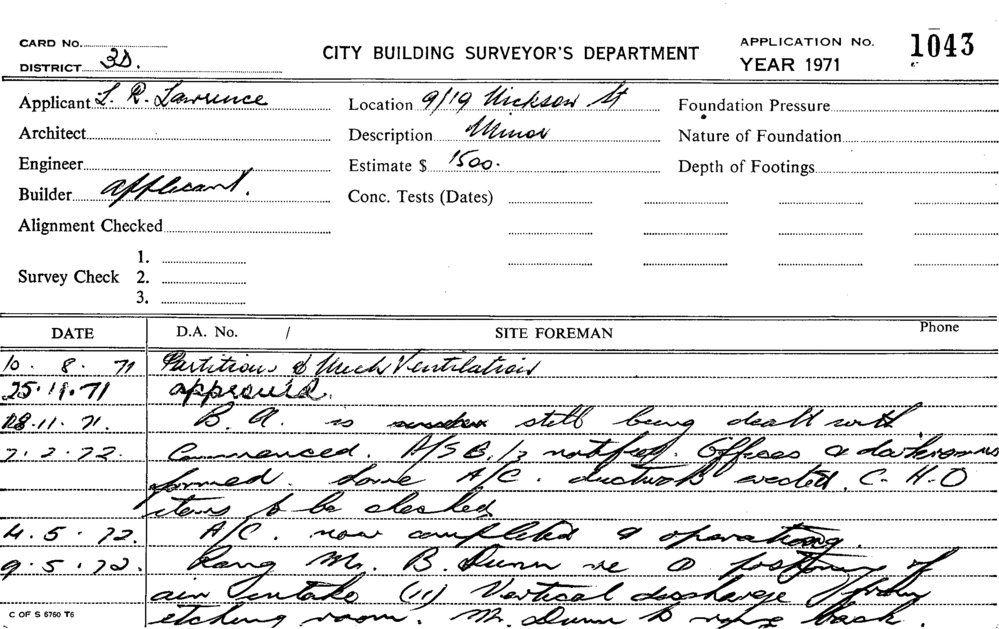 CARD No.
DISTRICT 3D.
CITY BUILDING SURVEYOR'S DEPARTMENT
APPLICATION No. 1043
YEAR 1971
Applicant L. R. Lawrence
Location 9/19 Nickson St
Foundation Pressure
Architect
Description Minor
Nature of Foundation
Engineer
Estimate $ 1500.
Depth of Footings
Builder applicant.
Conc. Tests (Dates)
Alignment Checked
Survey Check
1.
2.
3.
DATE D.A. No. / SITE FOREMAN Phone
10. 8. 71 Partitions & Mech Ventilation
approved.
28.11.71. B.A. is still being dealt with.
7.2.72. Commenced. notified. Offices & darkrooms
formed. Some A/C. ductwork erected. C.H.O
items to be checked
4.5.72. A/C. now completed & operating.
9.5.72. Rang Mr. B. Dunn re positioning of
air intake (11) Vertical discharge from
etching room. Mr. Dunn to ring back.
C OF S 6760 T6